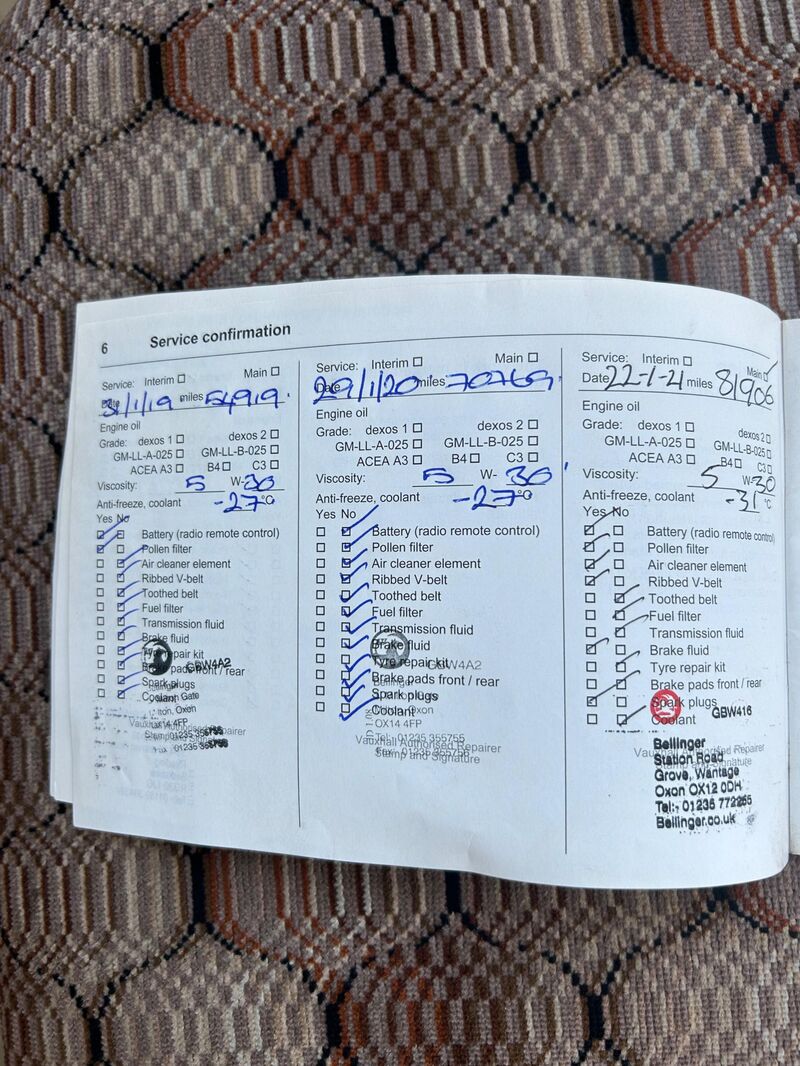 6 Service confirmation
Service: Interim Main
Date 31/1/19 miles 54919.
Engine oil
Grade: dexos 1 dexos 2
GM-LL-A-025 GM-LL-B-025
ACEA A3 B4 C3
Viscosity: 5 W-30
Anti-freeze, coolant -27°C
Yes No
Battery (radio remote control)
Pollen filter
Air cleaner element
Ribbed V-belt
Toothed belt
Fuel filter
Transmission fluid
Brake fluid
Tyre repair kit
GBW4A2
Brake pads front / rear
Spark plugs
Coolant
Gate
Oxon
OX14 4FP
Vauxhall Authorised Repairer
Stamp and Signature
01235 355755
Service: Interim Main
Date 29/1/20 miles 70769.
Engine oil
Grade: dexos 1 dexos 2
GM-LL-A-025 GM-LL-B-025
ACEA A3 B4 C3
Viscosity: 5 W-30
Anti-freeze, coolant -27°C
Yes No
Battery (radio remote control)
Pollen filter
Air cleaner element
Ribbed V-belt
Toothed belt
Fuel filter
Transmission fluid
Brake fluid
Tyre repair kit
GBW4A2
Brake pads front / rear
Spark plugs
Coolant
Oxon
OX14 4FP
Tel: 01235 355755
Vauxhall Authorised Repairer
Stamp and Signature
Service: Interim Main
Date 22-1-21 miles 81906
Engine oil
Grade: dexos 1 dexos 2
GM-LL-A-025 GM-LL-B-025
ACEA A3 B4 C3
Viscosity: 5 W-30
Anti-freeze, coolant -31 °C
Yes No
Battery (radio remote control)
Pollen filter
Air cleaner element
Ribbed V-belt
Toothed belt
Fuel filter
Transmission fluid
Brake fluid
Tyre repair kit
Brake pads front / rear
Spark plugs
GBW416
Coolant
Vauxhall Authorised Repairer
Stamp and Signature
Bellinger
Station Road
Grove, Wantage
Oxon OX12 0DH
Tel:- 01235 772255
Bellinger.co.uk